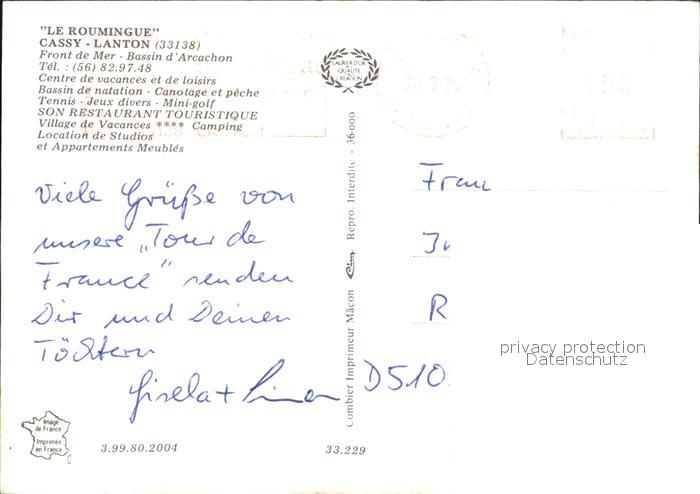 "LE ROUMINGUE"
CASSY - LANTON (33138)
Front de Mer - Bassin d'Arcachon
Tél. : (56) 82.97.48
Centre de vacances et de loisirs
Bassin de natation - Canotage et pêche
Tennis - Jeux divers - Mini-golf
SON RESTAURANT TOURISTIQUE
Village de Vacances **** Camping
Location de Studios
et Appartements Meublés
Viele Grüße von
unsere „Tour de
France" senden
Dir und Deinen
Töchtern
Gisela +
Image
de France
Imprimée
en France
3.99.80.2004
33.229
LAURIER D'OR
QUALITÉ
CRÉATION
Combier Imprimeur Mâcon
Repro. Interdite - 36-000
Frau
R
D510
privacy protection
Datenschutz